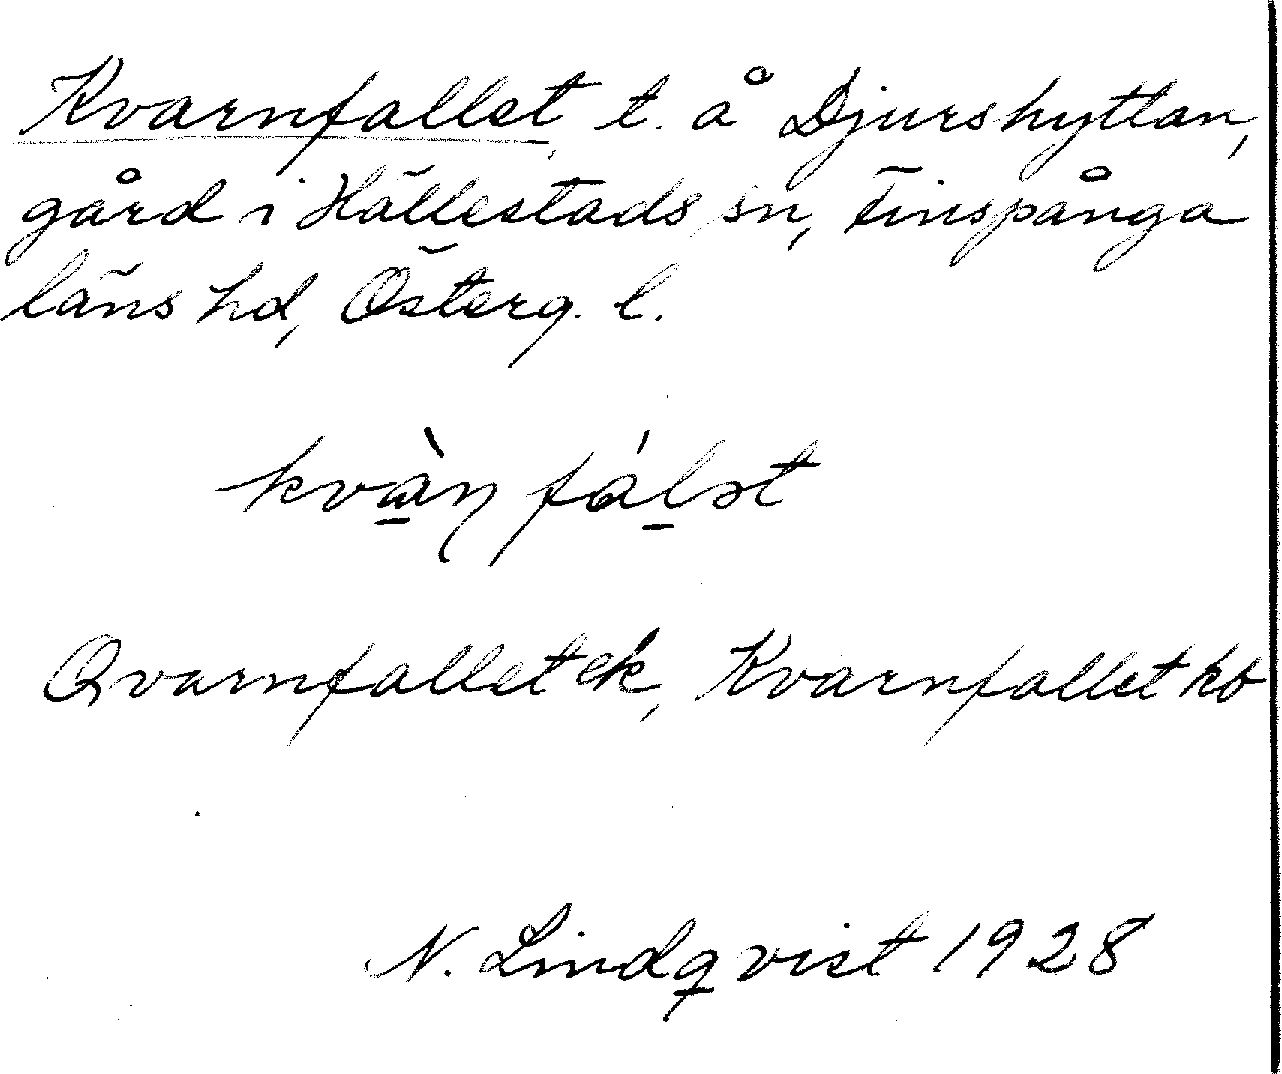 Kvarnfallet, t. å Djurshyttan,
gård i Hällestads sn, Finspånga
läns hd, Österg. l.
kvàn̩ fálət
Qvarnfallet ek, Kvarnfallet kb
N. Lindqvist 1928